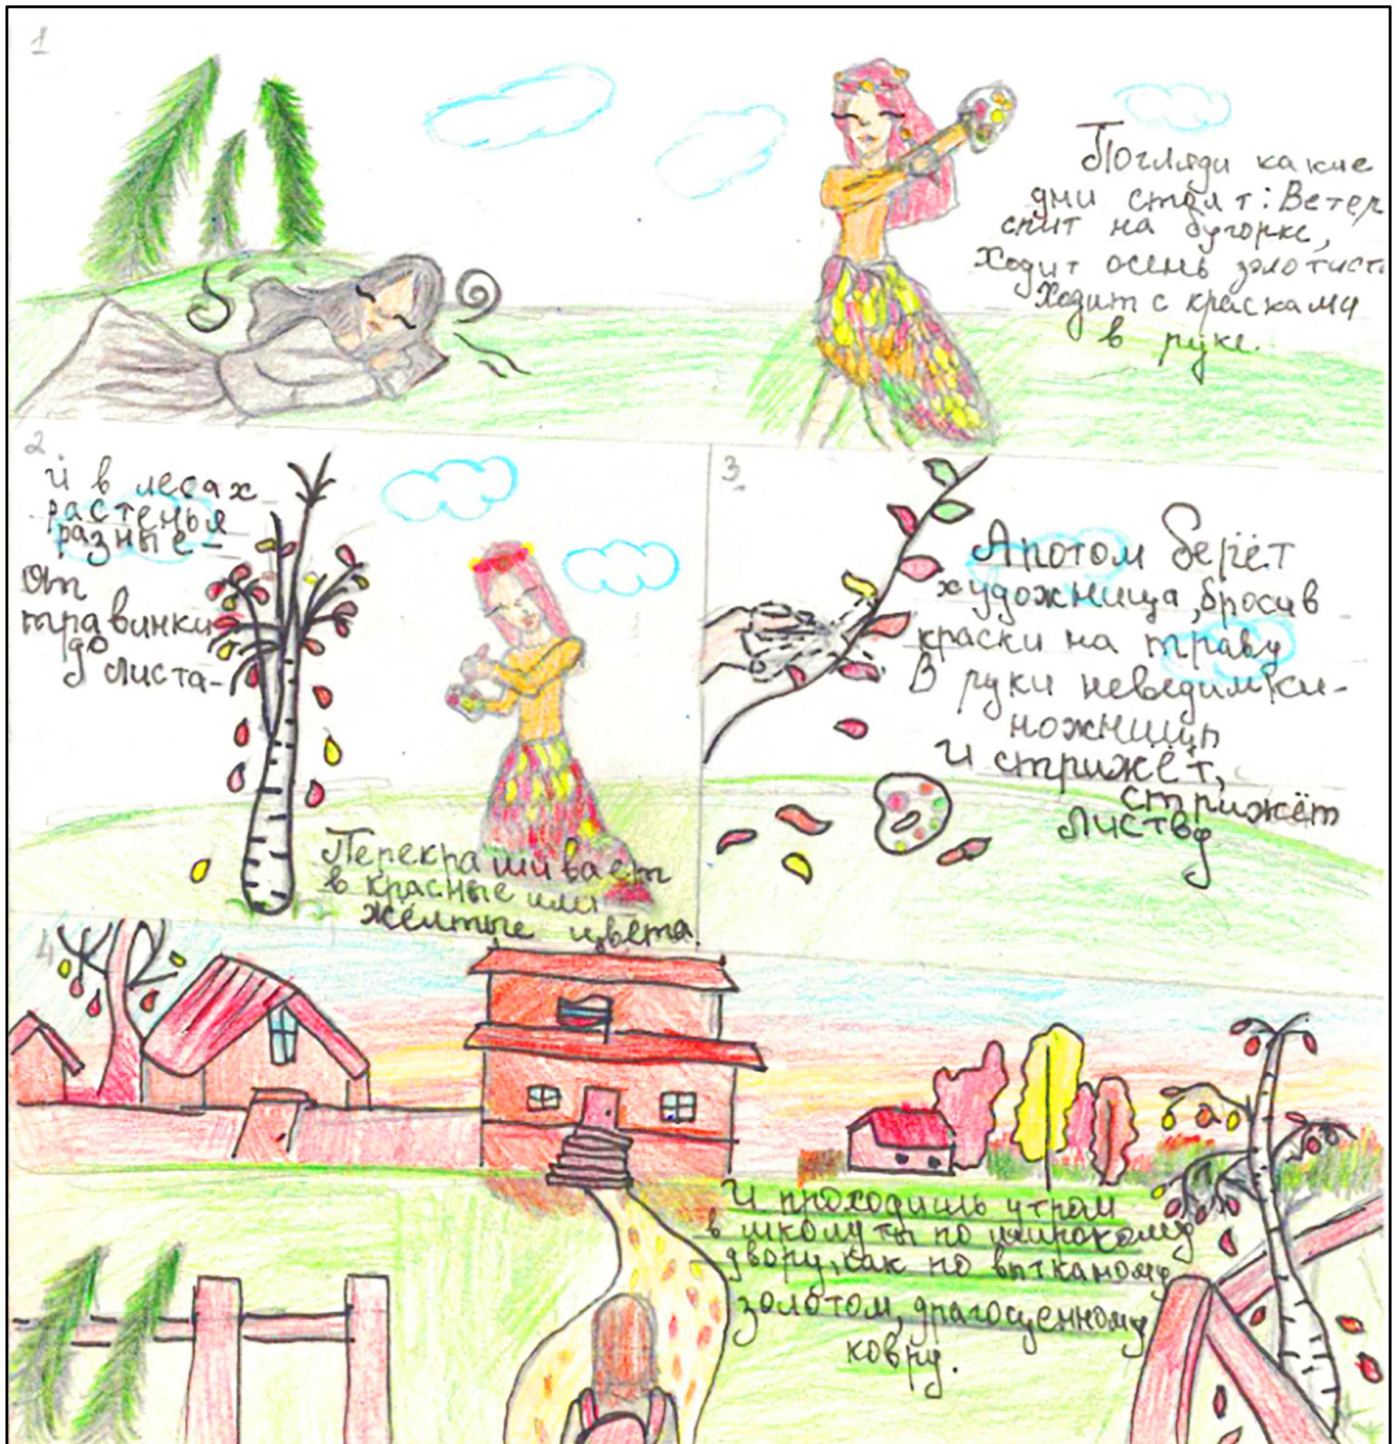 1
Погляди какие
дни стоят: Ветер
спит на бугорке,
Ходит осень золотист
Ходит с красками
в руке.
2
И в лесах
растенья
разные-
От
травинки
до
листа-
Перекрашивает
в красные или
жёлтые цвета.
3
А потом берёт
художница, бросив
краски на траву
В руки неведимки-
ножницы
И стрижёт,
стрижёт
листву
4
И проходишь утром
в школу ты по широкому
двору, как по вытканому
золотом, драгоценному
ковру.